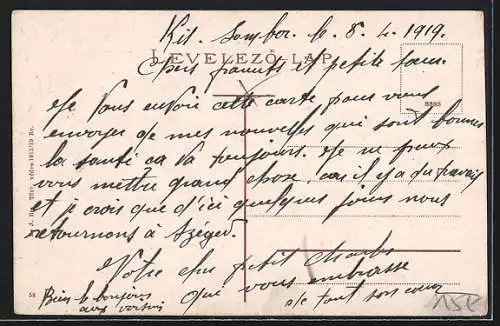 Kis. Sombor. le. 8. 4. 1919.
LEVELEZŐ-LAP.
Chers parents et petite sœur.
Je vous envoie cette carte pour vous
envoyer de mes nouvelles qui sont bonnes
la santé ca va toujours. Je ne peux
vous mettre grand chose, car il y a du travail
et je crois que d'ici quelques jours nous
retournons à Szeged.
Votre cher petit Charles
qui vous embrasse
de tout son cœur
Bien le bonjours
aux voisins
58